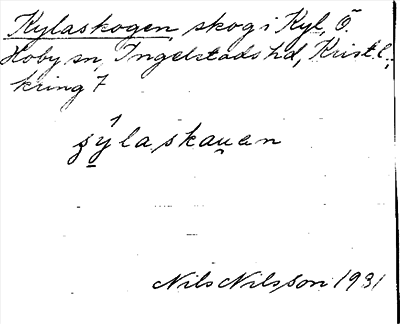 Kylaskogen, skog i Kyl, Ö.
Hoby sn, Ingelstads hd, Krist. l.,
kring 7
ʒýla,skau̯en
Nils Nilsson 1931